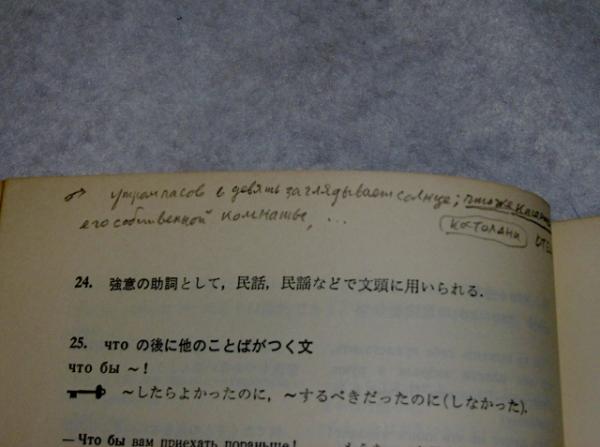 утром часов в девять заглядывает солнце; что же касается
его собственной комнаты, ...
24. 強意の助詞として，民話，民謡などで文頭に用いられる.
25. что の後に他のことばがつく文
что бы ~ !
~したらよかったのに，~するべきだったのに(しなかった).
— Что бы вам приехать пораньше!